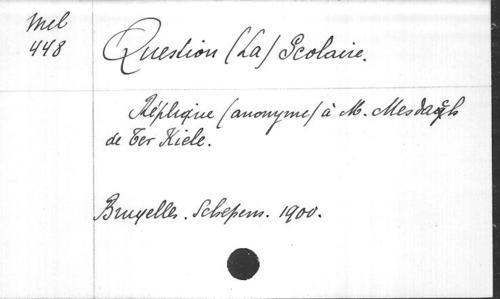 Mel
448
Question (La) Scolaire.
Réplique (anonyme) à M. Mesdach
de Ter Kiele.
Bruxelles. Schepens. 1900.